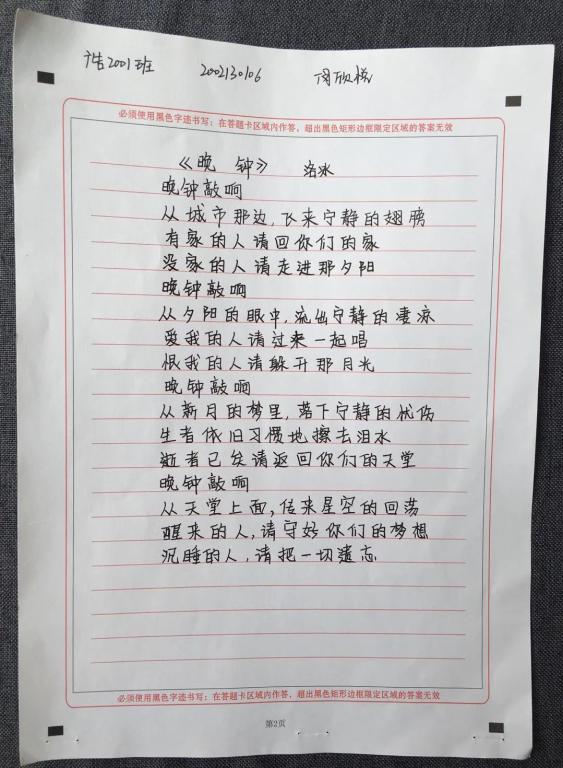 浩2001班 2002130106 周欣悦
必须使用黑色字迹书写：在答题卡区域内作答，超出黑色矩形边框限定区域的答案无效
《晚 钟》 洛水
晚钟敲响
从城市那边,飞来宁静的翅膀
有家的人请回你们的家
没家的人请走进那夕阳
晚钟敲响
从夕阳的眼中,流出宁静的凄凉
爱我的人请过来一起唱
恨我的人请躲开那月光
晚钟敲响
从新月的梦里,落下宁静的忧伤
生者依旧习惯地擦去泪水
逝者已矣请返回你们的天堂
晚钟敲响
从天堂上面,传来星空的回荡
醒来的人,请守好你们的梦想
沉睡的人,请把一切遗忘
必须使用黑色字迹书写：在答题卡区域内作答，超出黑色矩形边框限定区域的答案无效
第2页